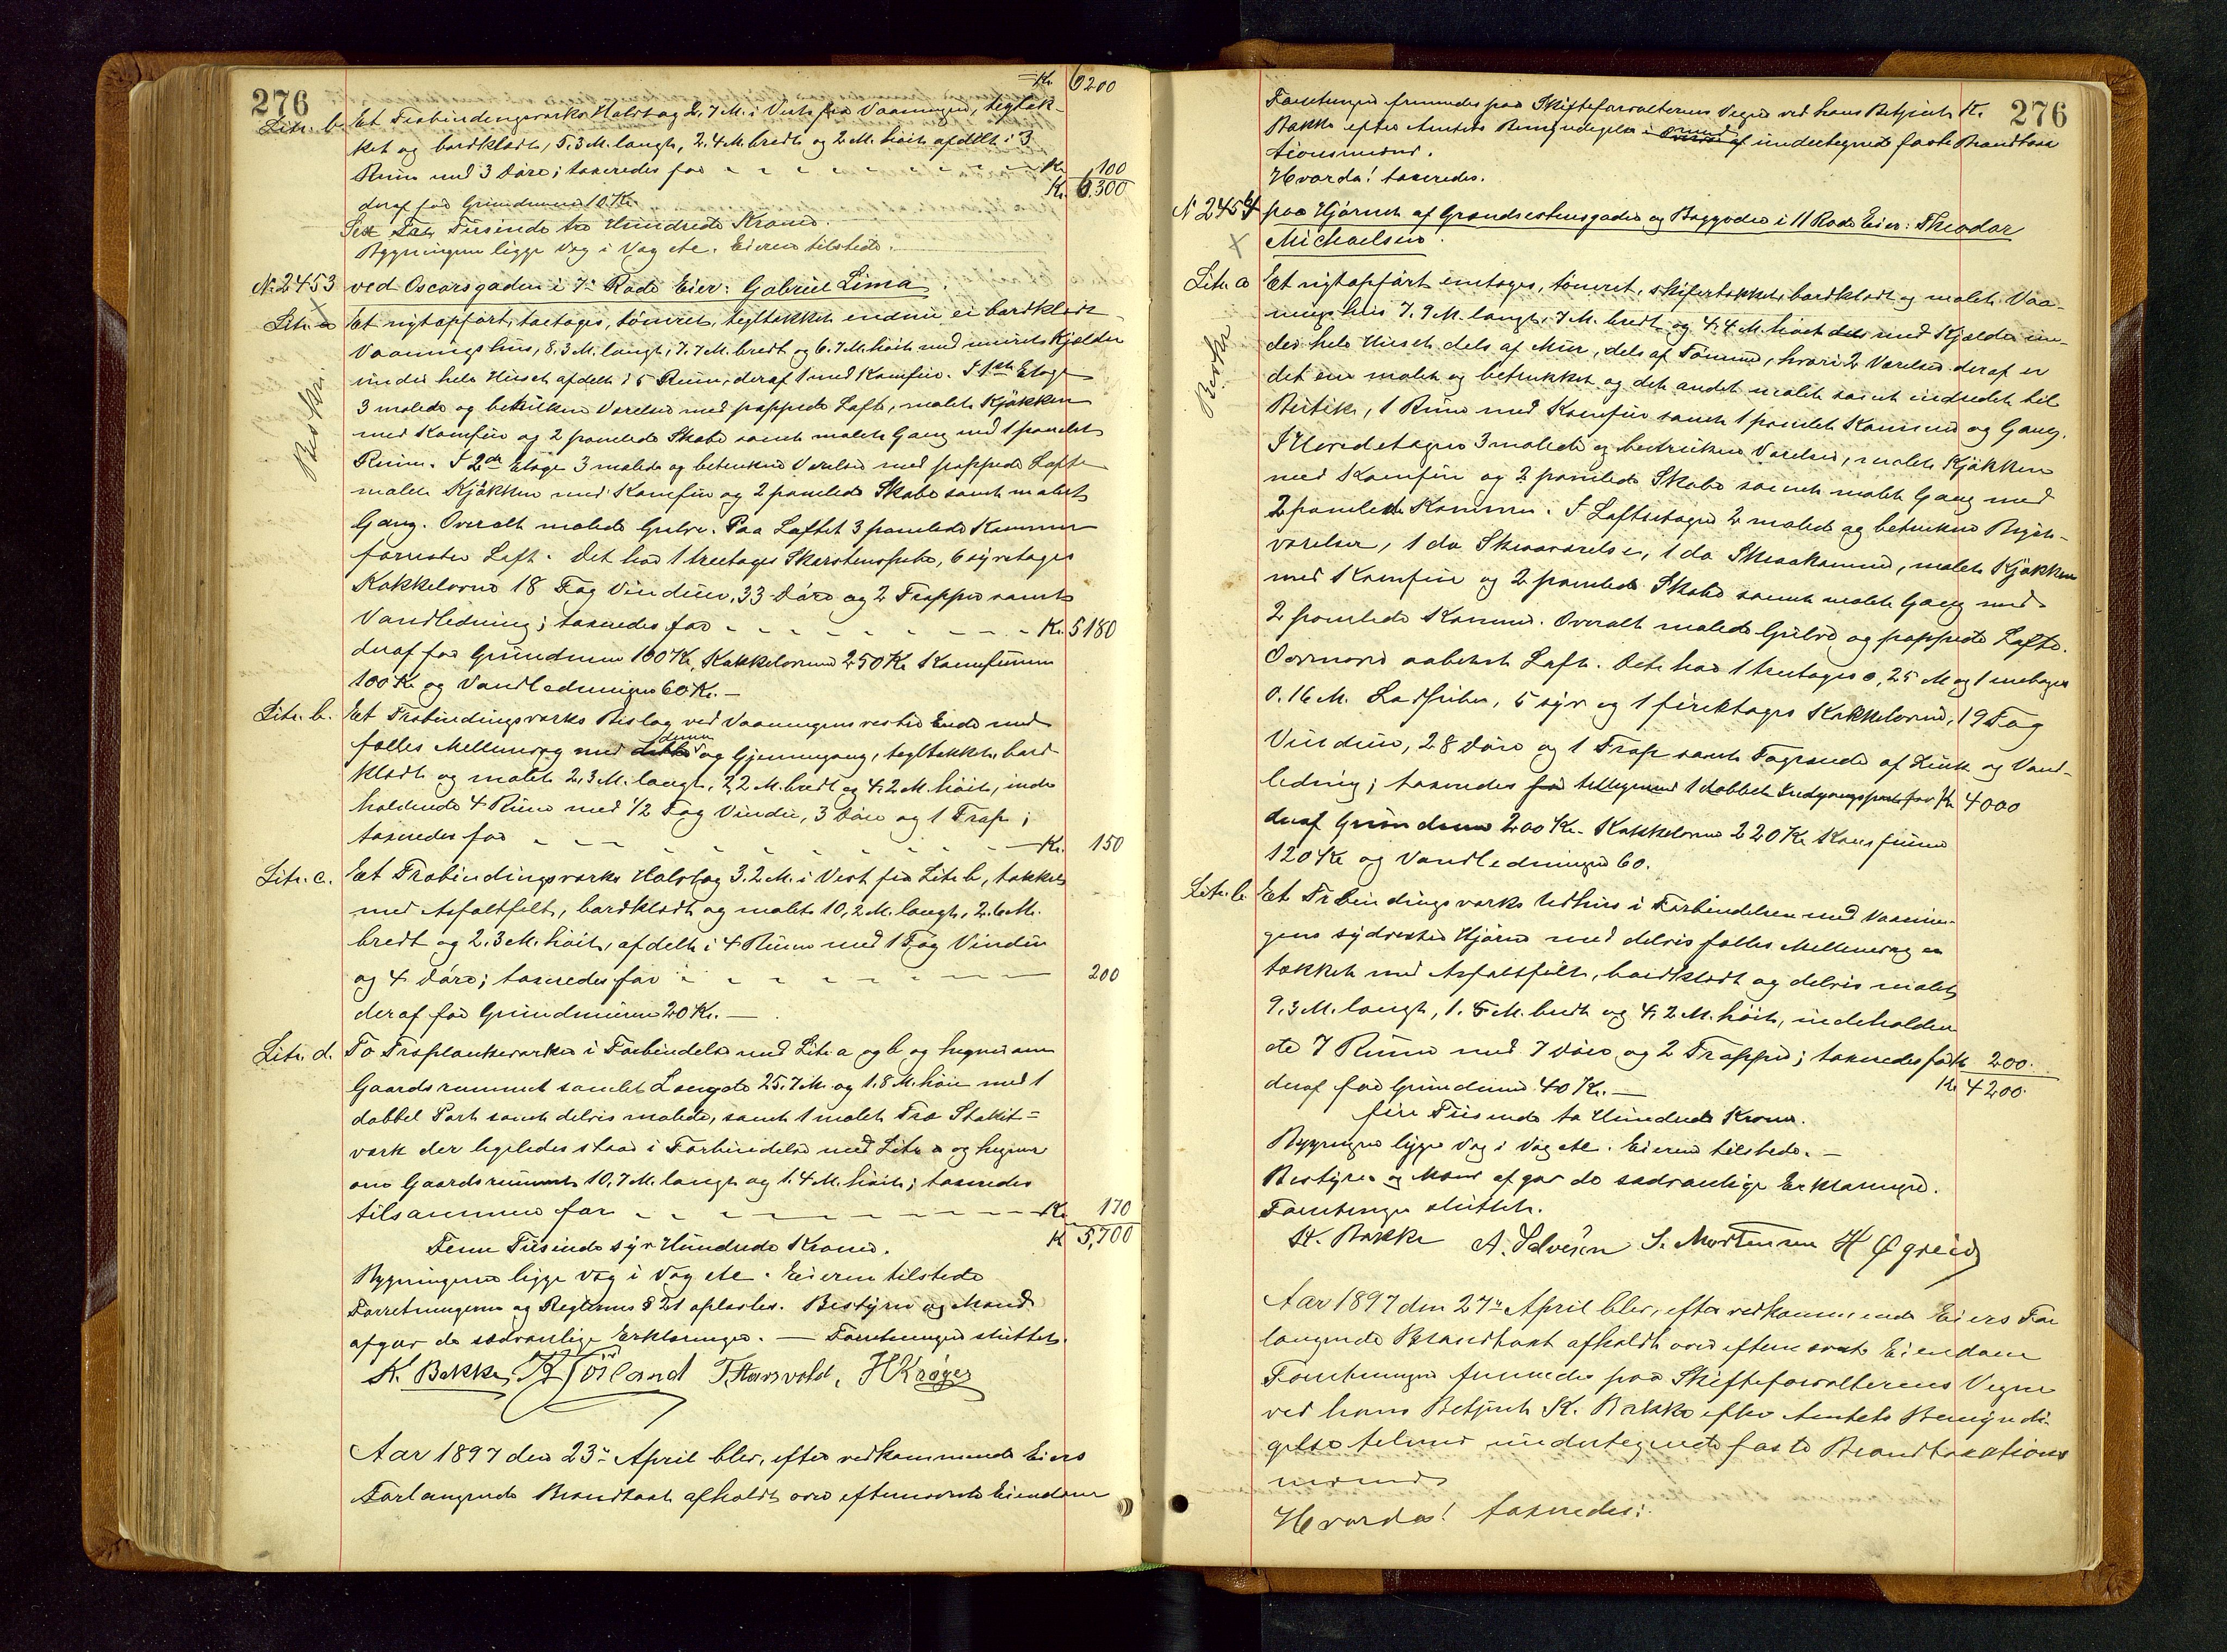 276
Kr. 6200
Litr. b. Et Træbindingsværks Halvtag 2,7 M. i Vest fra Vaaningen, tegltæk-
ket og bordklædt, 5,3 M. langt, 2,4 M. bredt og 2 M. høit afdelt i 3
Rum med 3 Døre; taxeredes for Kr. 100
deraf for Grundmuren 10 Kr. Kr. 6,300
Sex Tusinde tre Hundrede Kroner.
Bygningerne ligge Væg i Væg etc. Eieren tilstede.
No 2453 ved Oscarsgaden i 7de Rode Eier: Gabriel Lima.
Litr. a Et nytopført, toetages, tømret, tegltækket endnu ei bordklædt
Vaaningshus, 8,3 M. langt, 7,7 M. bredt og 6,7 M. høit med muret Kjælder
under hele Huset afdelt i 5 Rum, deraf 1 med Komfur. I 1ste Etage
3 malede og betrukne Værelser med pappede Lofte, malet Kjøkken
med Komfur og 2 panelede Skabe samt malet Gang med 1 panelet
Rum. I 2den Etage 3 malede og betrukne Værelser med pappede Lofte
malet Kjøkken med Komfur og 2 panelede Skabe samt malet
Gang. Overalt malede Gulve. Paa Loftet 3 panelede Kammer
forresten Loft. Det har 1 treetages Skorstenspibe, 6 syvetages
Kakkelovne 18 Fag Vinduer, 33 Døre og 2 Trapper samt
Vandledning; taxeredes for Kr. 5180
deraf for Grundmuren 100 Kr, Kakkelovnene 250 Kr Komfurene
100 Kr og Vandledningen 60 Kr.
Litr. b. Et Træbindingsværks Bislag ved Vaaningens vestre Ende med
fælles Mellemvæg med denne og Gjennemgang, tegltækket, bord-
klædt og malet 2,3 M. langt, 2,2 M. bredt og 4,2 M. høit, inde-
holdende 4 Rum med 1/2 Fag Vindu, 3 Døre og 1 Trap;
taxeredes for Kr. 150
Litr. c. Et Træbindingsværks Halvtag 3,2 M. i Vest fra Litr. b, tækket
med Asfaltfilt, bordklædt og malet 10,2 M. langt, 2,6 M.
bredt og 2,3 M. høit, afdelt i 4 Rum med 1 Fag Vindu
og 4 Døre; taxeredes for 200
deraf for Grundmuren 20 Kr.
Litr. d. To Træplankeværker i Forbindelse med Litr a og b og hegner om
Gaardsrummet samlet Længde 25,7 M. og 1,8 M. høie med 1
dobbel Port samt delvis malede, samt 1 malet Træ Stakit-
værk der ligeledes staar i Forbindelse med Litr a og hegner
om Gaardsrummet 10,7 M. langt og 1,4 M. høit; taxeredes
tilsammen for Kr. 170
Fem Tusinde syv Hundrede Kroner. K 5,700
Bygningerne ligge Væg i Væg etc. Eieren tilstede
Forretningerne og Reglernes § 21 oplæstes. Bestyrer og Mænd
afgav de sædvanlige Erklæringer. — Forretningen sluttet.
K. Bakke, Sørland T. Haarvold, H Krøger
Aar 1897 den 23de April blev, efter vedkommende Eiers
Forlangende Brandtaxt afholdt over eftermævnte Eiendom
276
Forretningen fremmedes paa Skifteforvalterens Vegne ved hans Betjent K.
Bakke efter Amtets Bemyndigelse med undertegnede faste Brandtaxa
tionsmænd.
Hvorda! taxeredes.
N 2454 paa Hjørnet af Grandsestensgaden og Baggaden i 11 Rode Eier: Theodor
Michaelsen.
Litr. a Et nytopført entages, tømret, skifertækket, bordklædt og malet Vaa-
ningshus 7,9 M. langt, 7 M. bredt og 4,4 M. høit med Kjælder un-
der hele Huset dels af Mur, dels af Tømmer, hvori 2 Værelser deraf er
det ene malet og betrukket og det andet malet samt indredet til
Butik, 1 Rum med Komfur samt 1 panelet Kammer og Gang.
I Hovedetagen 3 malede og betrukne Værelser, malet Kjøkken
med Komfur og 2 panelede Skabe samt malet Gang med
2 panelede Kammer. I Loftsetagen 2 malede og betrukne Kvist-
værelser, 1 do Skraaværelse, 1 do Skraakammer, malet Kjøkken
med Komfur og 2 panelede Skabe samt malet Gang med
2 panelede Kammer. Overalt malede Gulve og pappede Lofte.
Ovenover aabent Loft. Det har 1 treetages 0,25 M og 1 enetages
0.16 M. Ladpiber, 5 syv og 1 fireetages Kakkelovne, 19 Fag
Vinduer, 28 Døre og 1 Trap samt Tagrender af Zink og Vand-
ledning; taxeredes tilligemed 1 dobbelt Indgangsport for Kr 4000
deraf Grundmuren 200 Kr. Kakkelovnene 220 Kr Komfurene
120 Kr og Vandledningen 60.
Litr. b. Et Træbindingsværks Udhus i Forbindelsen med Vaanin-
gens sydvestre Hjørne med delvis fælles Mellemvæg er
tækket med Asfaltfilt, bordklædt og delvis malet
9,3 M. langt, 1.5 M. bredt og 4,2 M. høit, indeholden
de 7 Rum med 7 Døre og 2 Trapper; taxeredes for Kr 200.
deraf for Grundmur 40 Kr. — Kr 4200.
fire Tusinde to Hundrede Kroner.
Bygningerne ligge Væg i Væg etc. Eieren tilstede. —
Bestyrer og Mænd afgav de sædvanlige Erklæringer.
Forretningen sluttet.
K. Bakke A. Salvesen S. Mortensen H Øgreid
Aar 1897 den 27de April blev, efter vedkommende Eiers For
langende Brandtaxt afholdt over eftermævnte Eiendom
Forretningen fremmedes paa Skifteforvalterens Vegne
ved hans Betjent K. Bakke efter Amtets Bemyndi-
gelse undertegnede faste Brandtaxations
mænd
Hvorda! taxeredes: